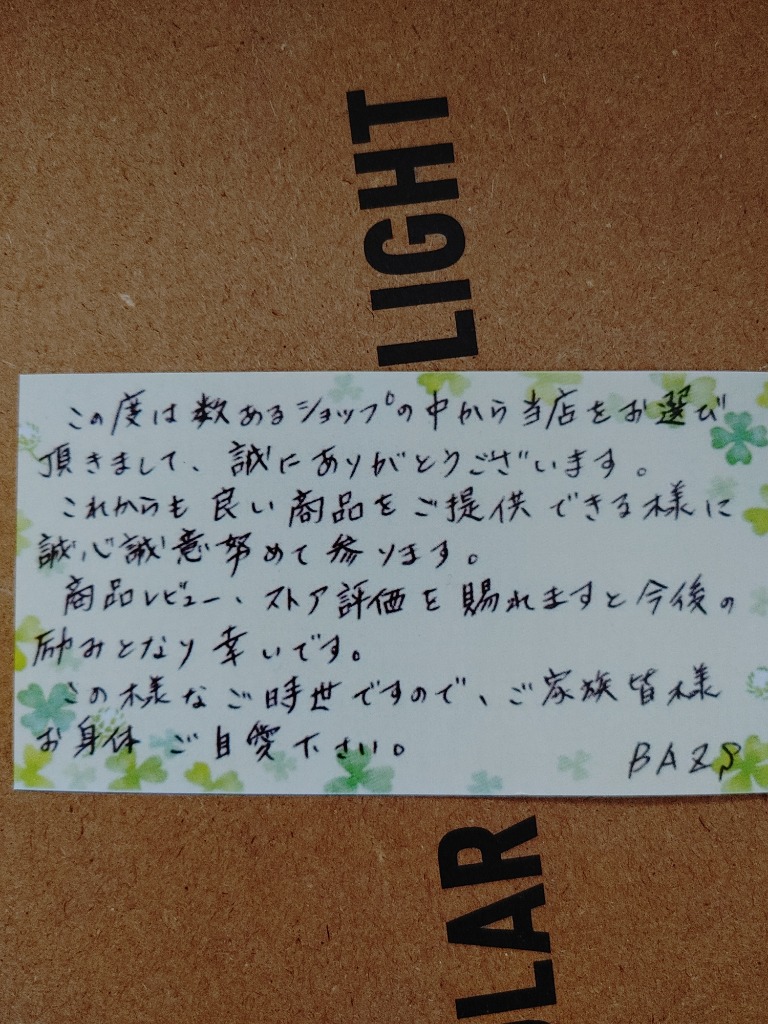 LIGHT
この度は数あるショップの中から当店をお選び
頂きまして、誠にありがとうございます。
これからも良い商品をご提供できる様に
誠心誠意努めて参ります。
商品レビュー、ストア評価を賜れますと今後の
励みとなり幸いです。
この様なご時世ですので、ご家族皆様
お身体ご自愛下さい。
BAZS
OLAR